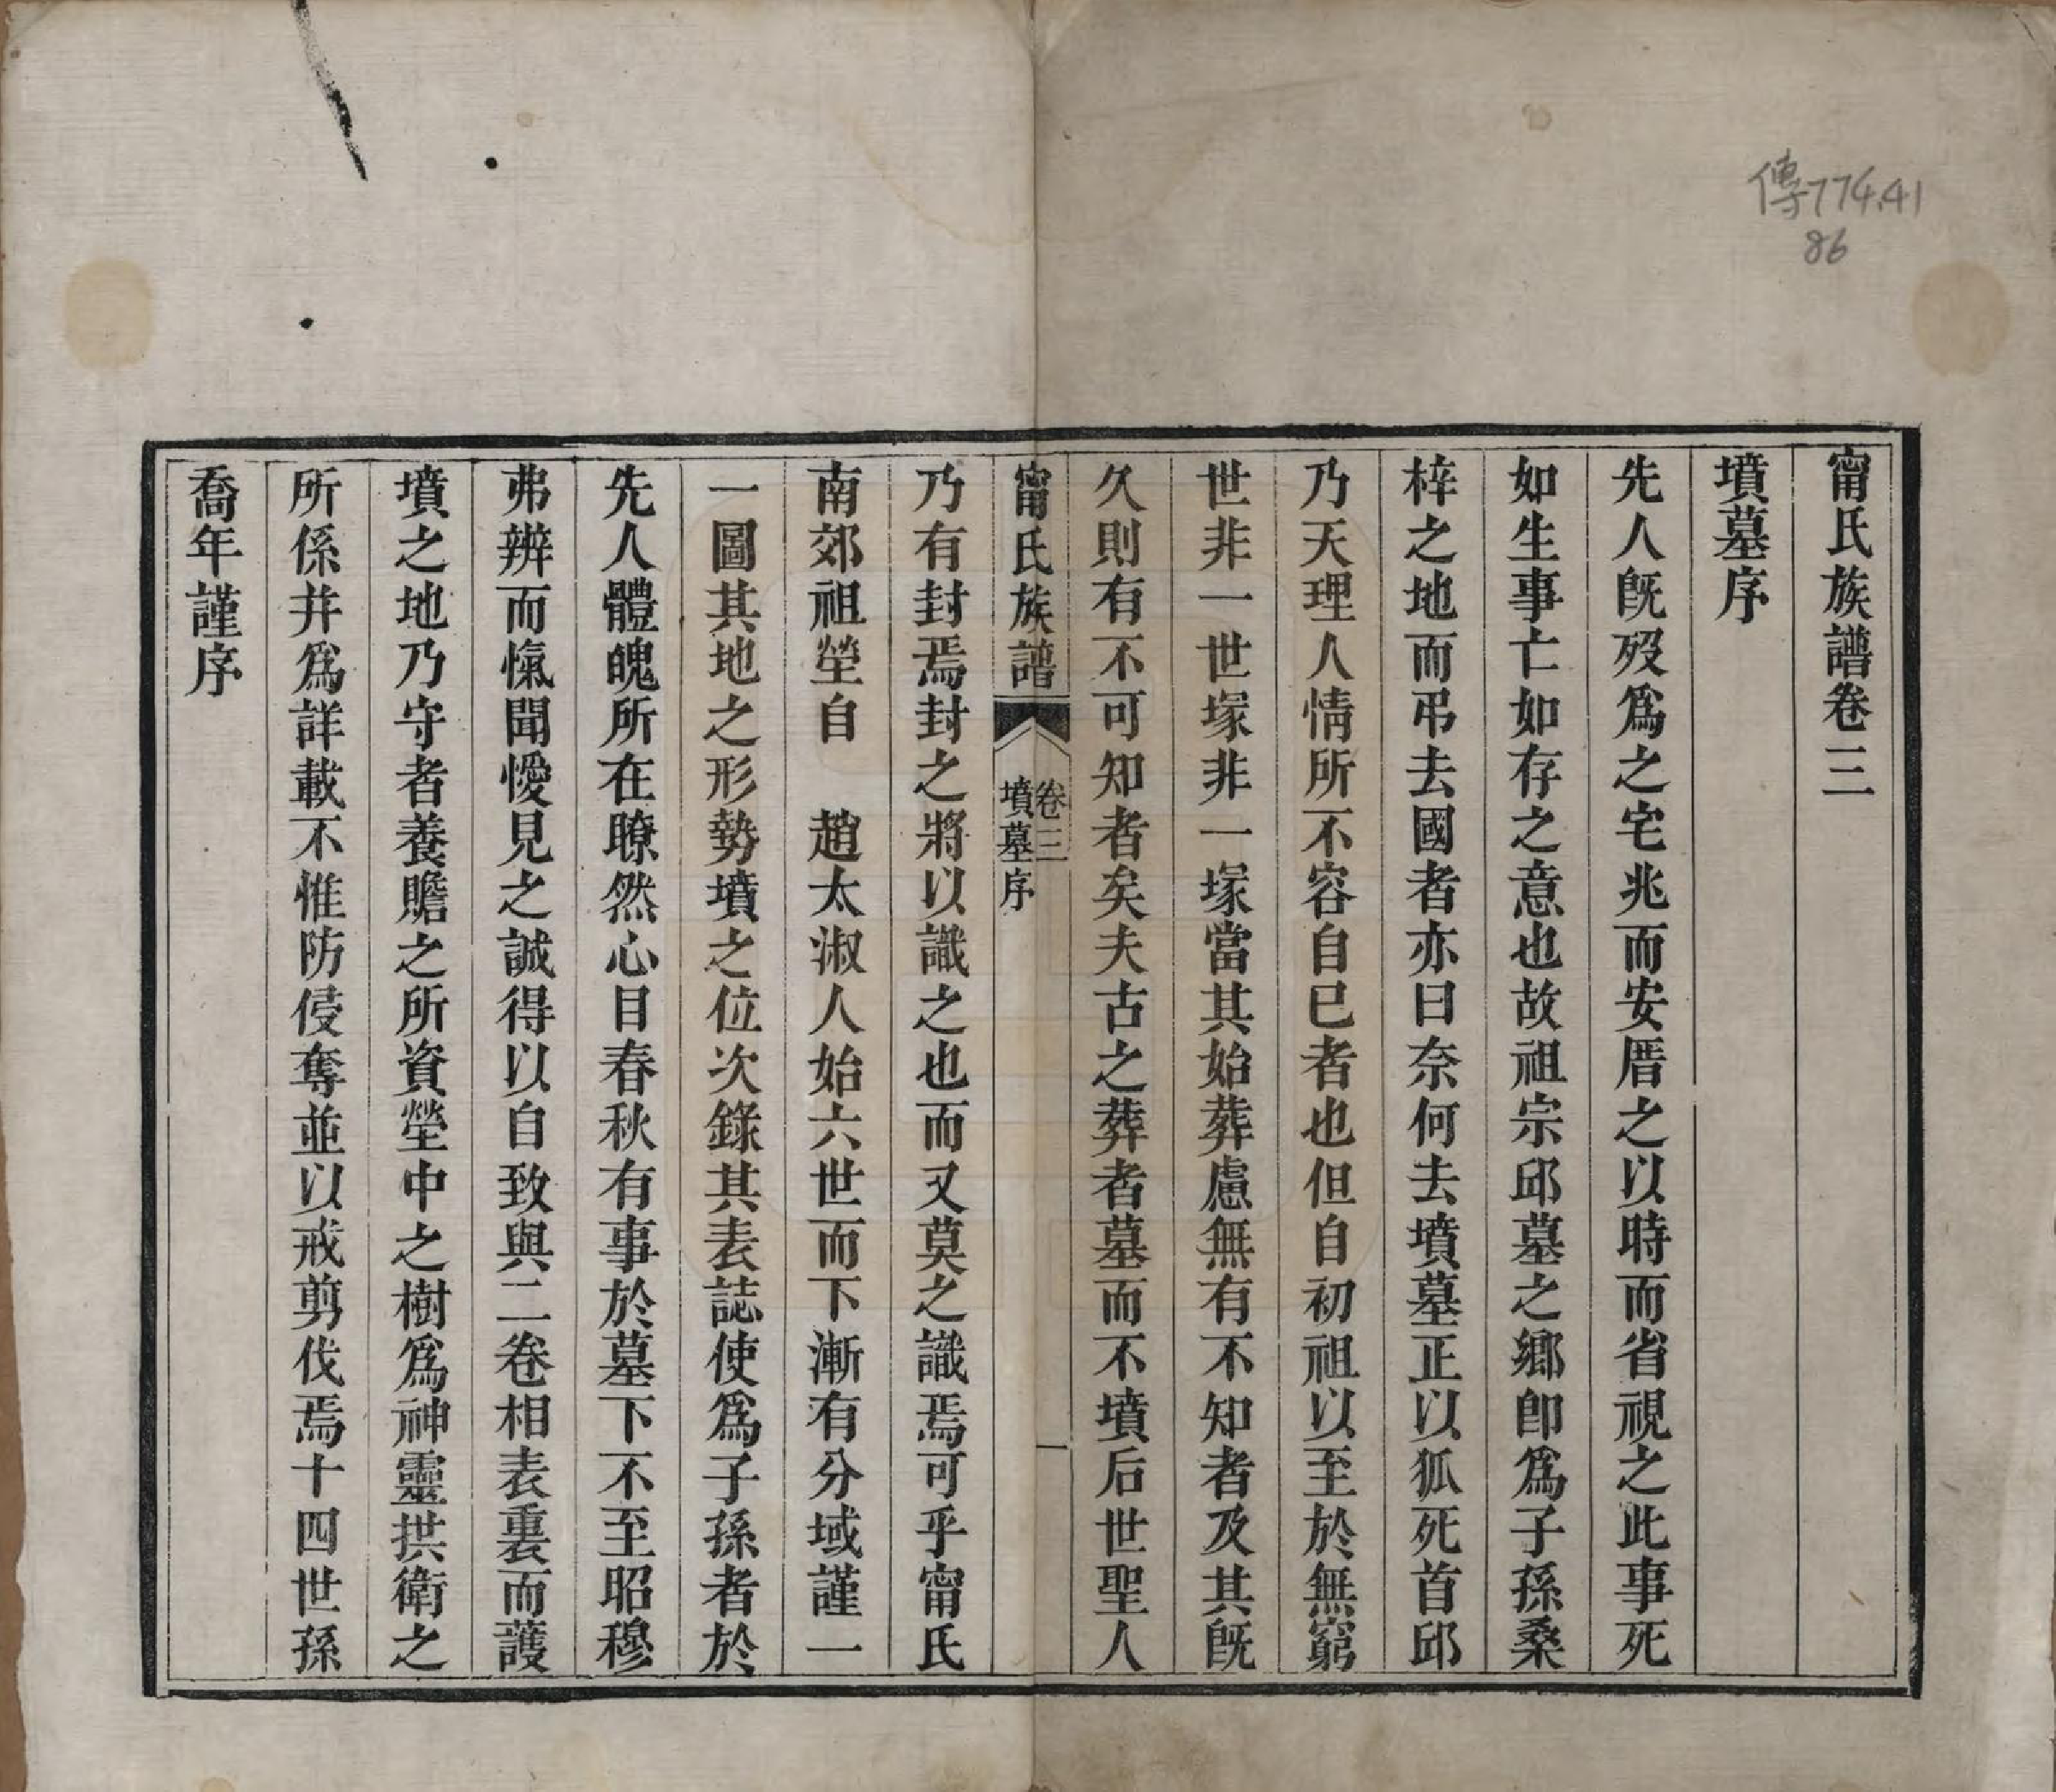 傳774.41
86
甯氏族譜卷三
墳墓序
先人旣歿爲之宅兆而安厝之以時而省視之此事死
如生事亡如存之意也故祖宗邱墓之鄉卽爲子孫桑
梓之地而弔去國者亦曰奈何去墳墓正以狐死首邱
乃天理人情所不容自已者也但自初祖以至於無窮
世非一世塚非一塚當其始葬慮無有不知者及其旣
久則有不可知者矣夫古之葬者墓而不墳后世聖人
甯氏族譜
卷三
墳墓序
一
乃有封焉封之將以識之也而又莫之識焉可乎甯氏
南郊祖塋自　趙太淑人始六世而下漸有分域謹一
一圖其地之形勢墳之位次錄其表誌使爲子孫者於
先人體魄所在瞭然心目春秋有事於墓下不至昭穆
弗辨而愾聞僾見之誠得以自致與二卷相表裏而護
墳之地乃守者養贍之所資塋中之樹爲神靈拱衛之
所係并爲詳載不惟防侵奪並以戒剪伐焉十四世孫
喬年謹序